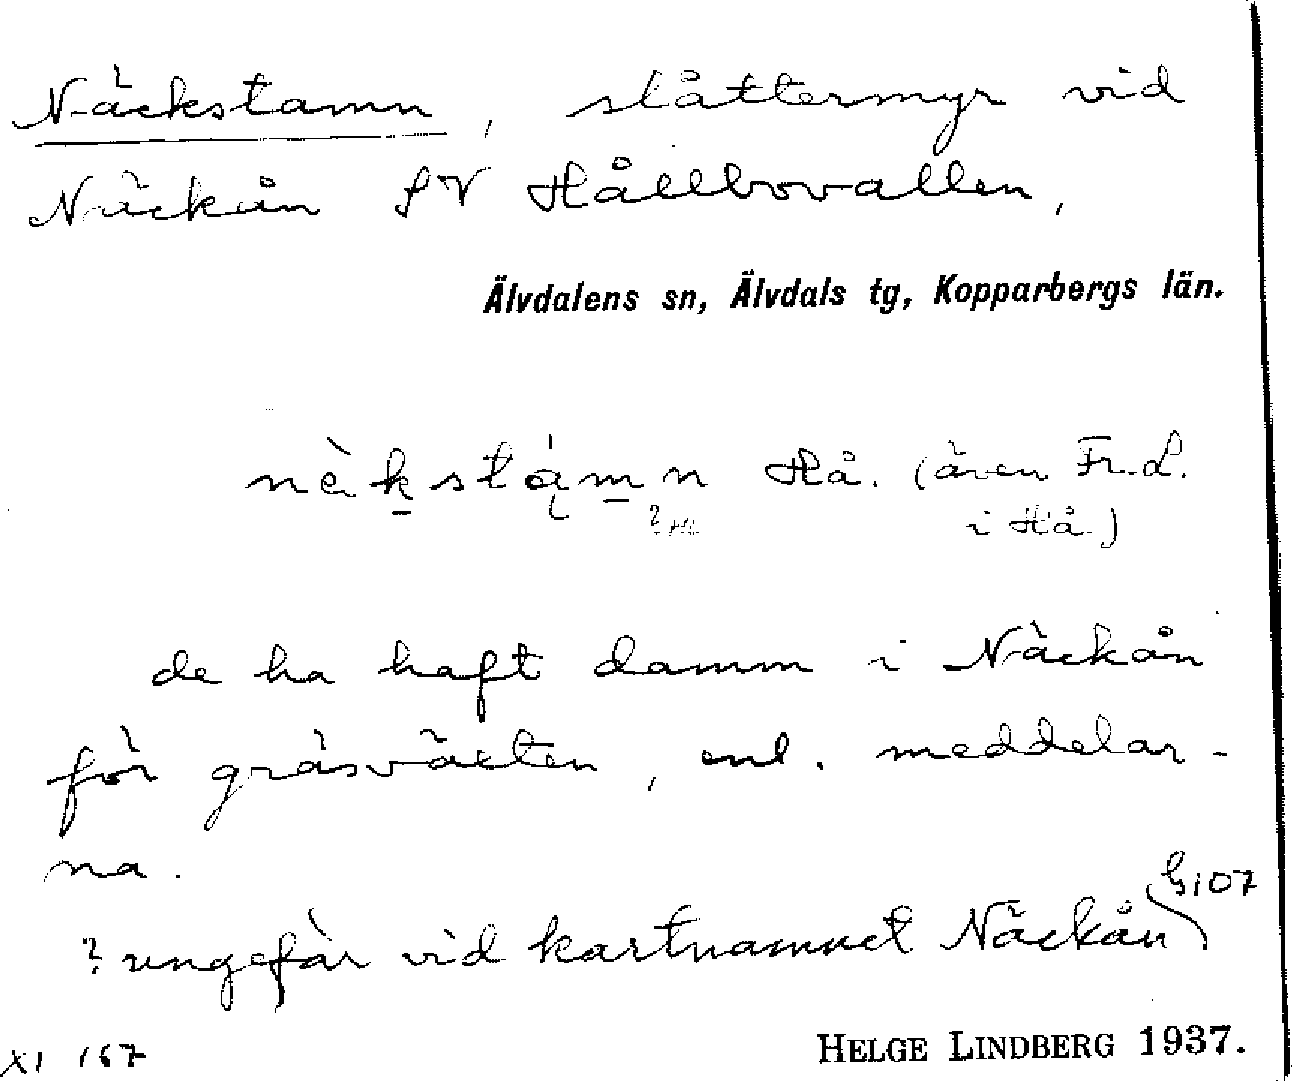 Näckstamn, slåttermyr vid
Näckån SV Hållbovallen,
Älvdalens sn, Älvdals tg, Kopparbergs län.
Hå. (även Fr.L.
i Hå.)
de ha haft damm i Näckån
för gräsväxten, enl. meddelar-
na.
? ungefär vid kartnamnet Näckån
G107
XI 167
HELGE LINDBERG 1937.